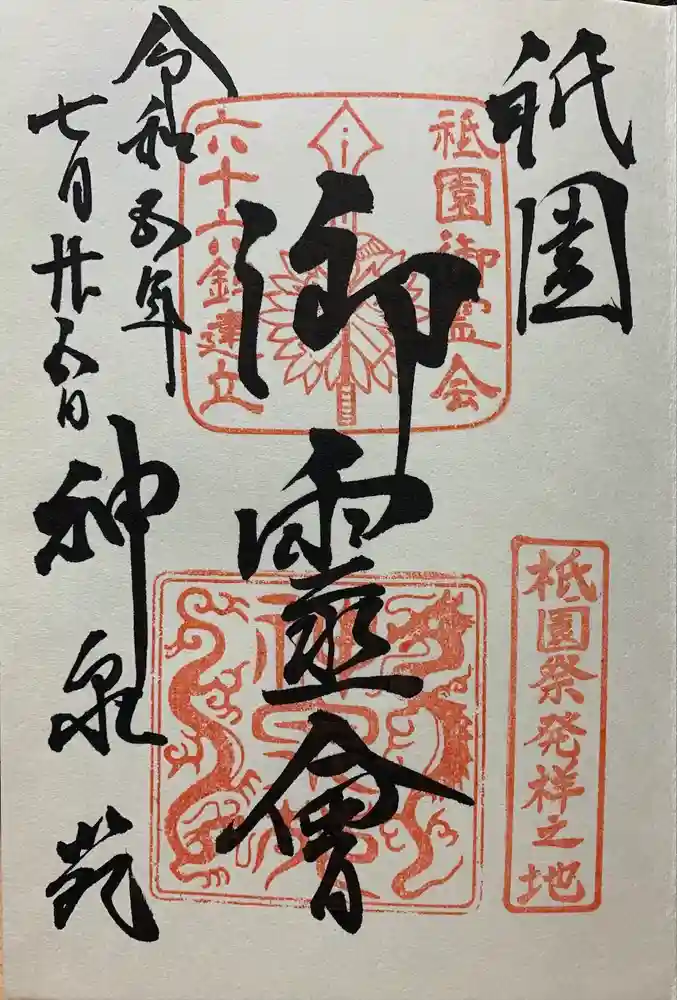 祇園
祇園御霊会
御靈會
六十六鉾建立
祇園祭発祥之地
令和五年
七月廿五日
神泉苑